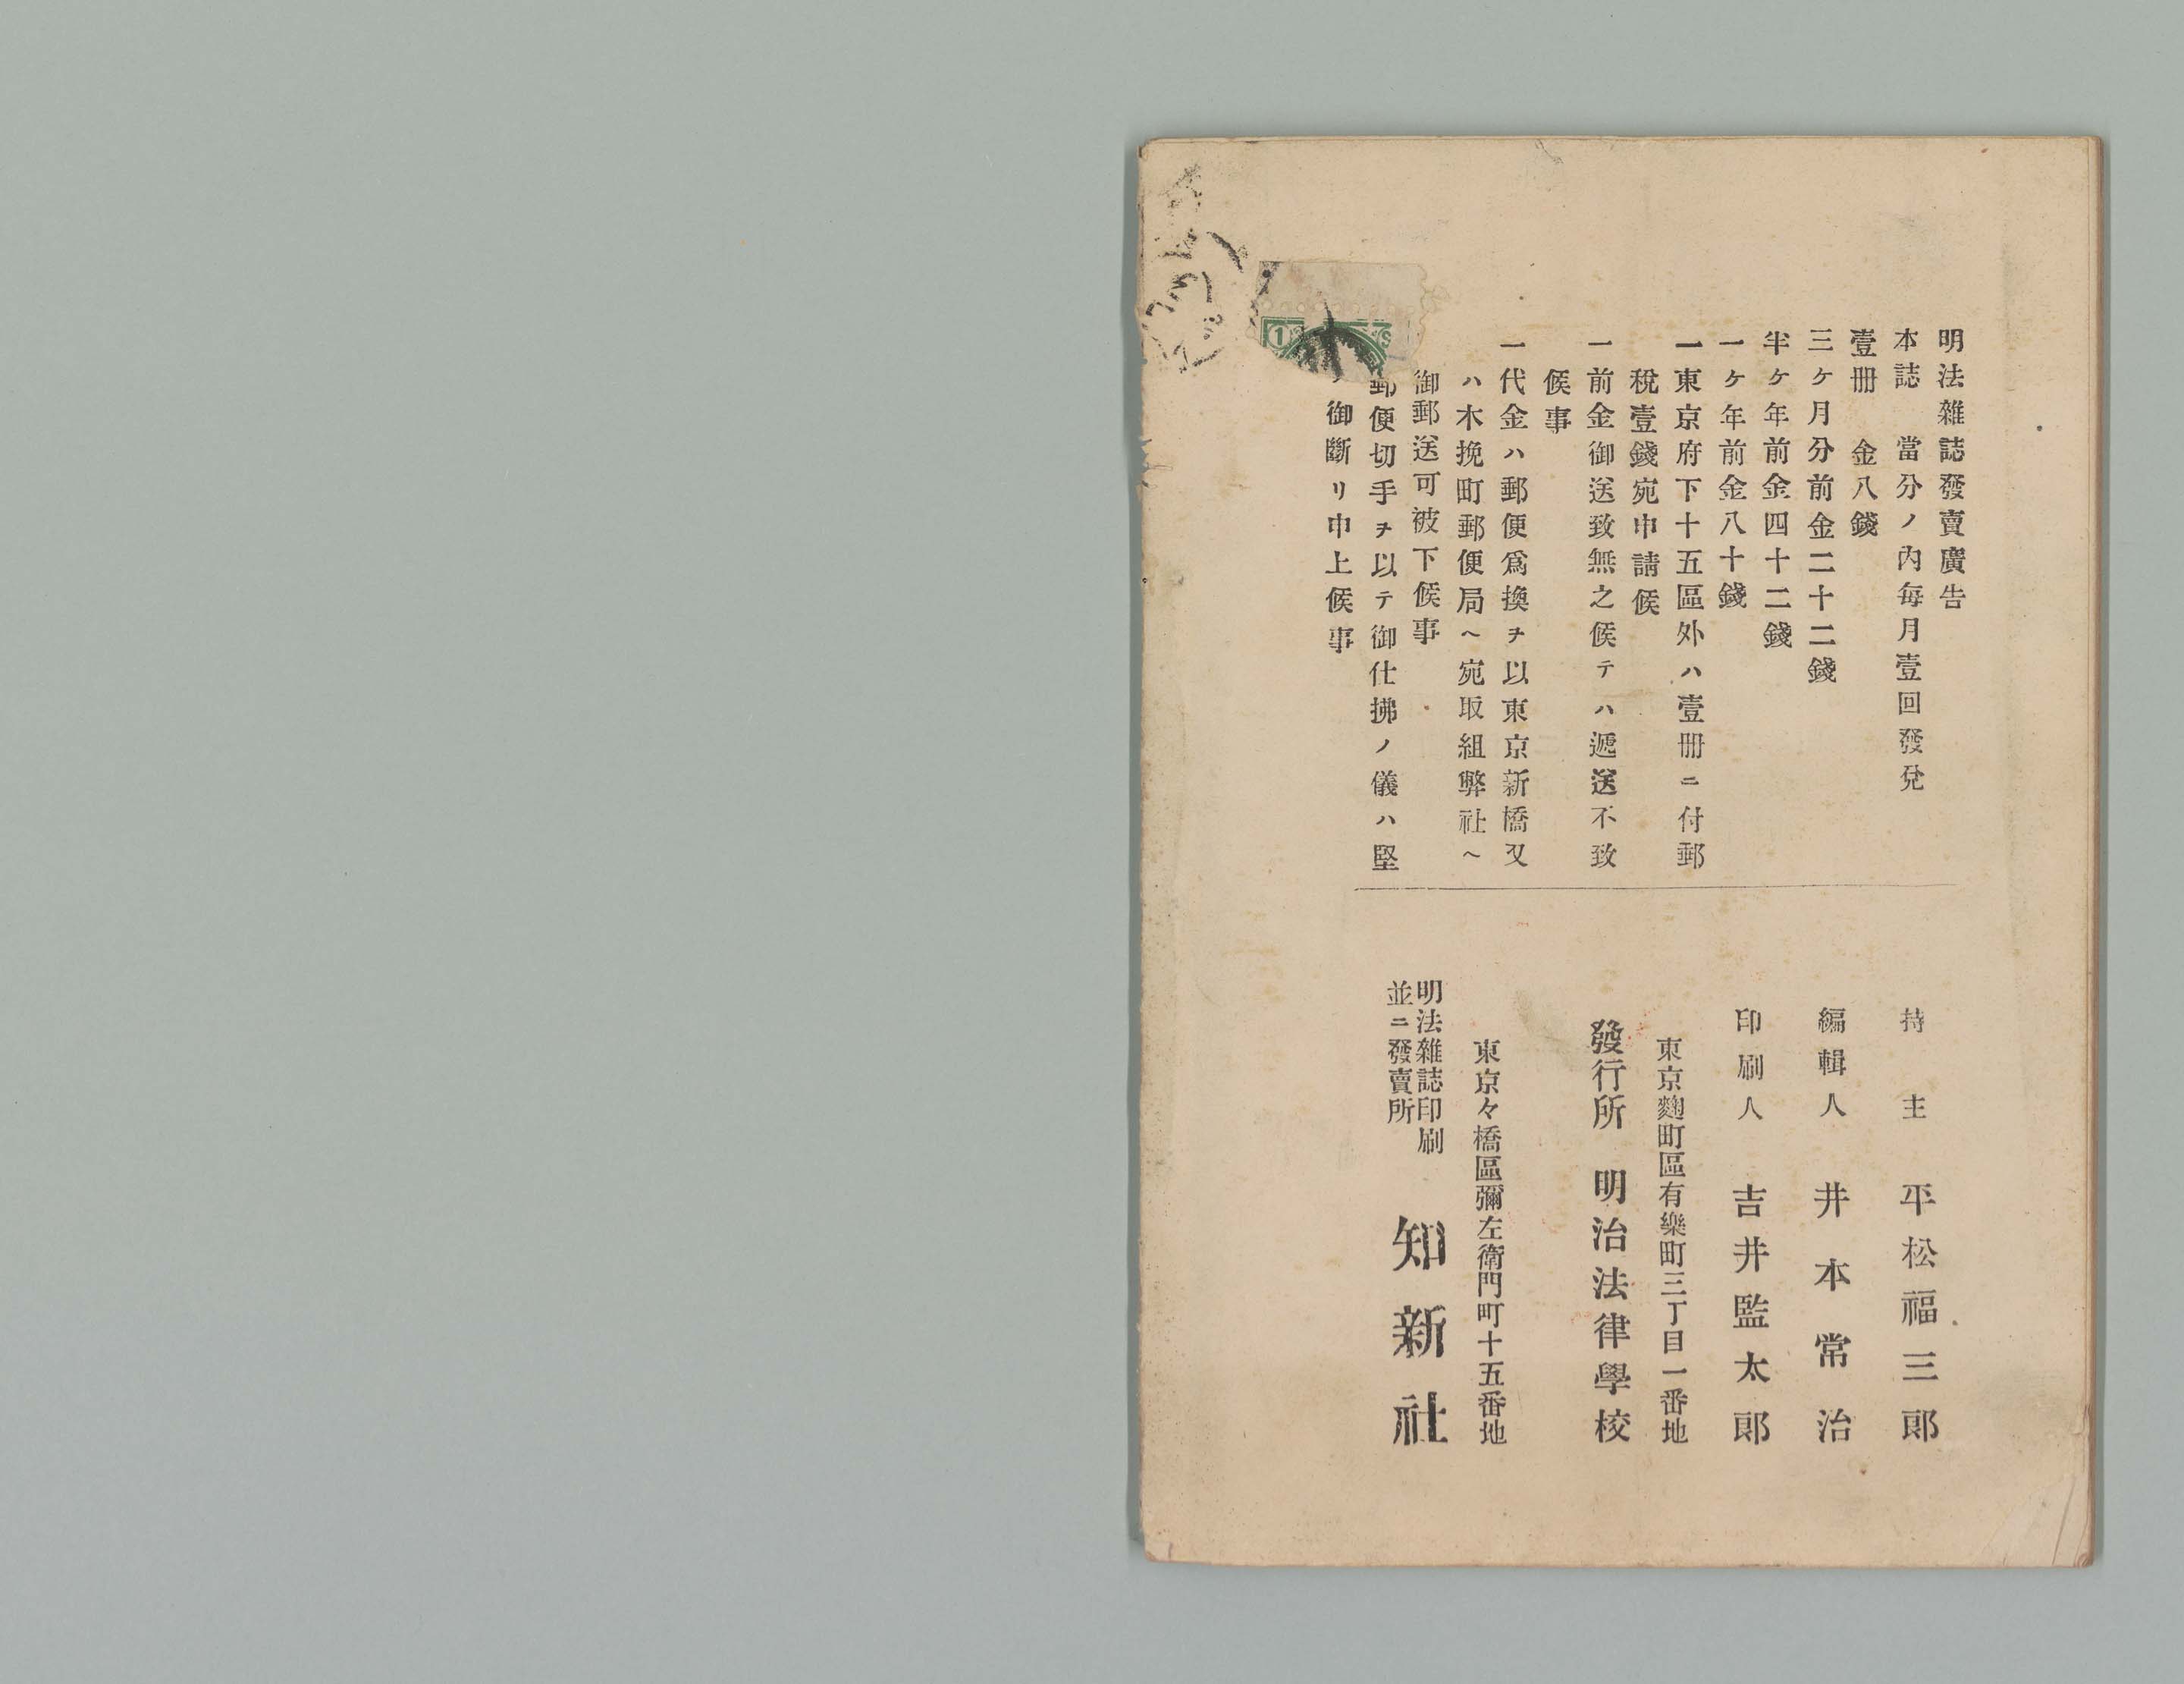 明法雜誌發賣廣告
本誌 當分ノ內每月壹回發兌
壹冊 金八錢
三ケ月分前金二十二錢
半ケ年前金四十二錢
一ケ年前金八十錢
一東京府下十五區外ハ壹冊ニ付郵
稅壹錢宛申請候
一前金御送致無之候テハ遞送不致
候事
一代金ハ郵便爲換ヲ以東京新橋又
ハ木挽町郵便局ヘ宛取組弊社ヘ
御郵送可被下候事
郵便切手ヲ以テ御仕拂ノ儀ハ堅
ク御斷リ申上候事
持主 平松福三郎
編輯人 井本常治
印刷人 吉井監太郎
東京麴町區有樂町三丁目一番地
發行所 明治法律學校
東京々橋區彌左衛門町十五番地
明法雜誌印刷
並ニ發賣所
知新社
1